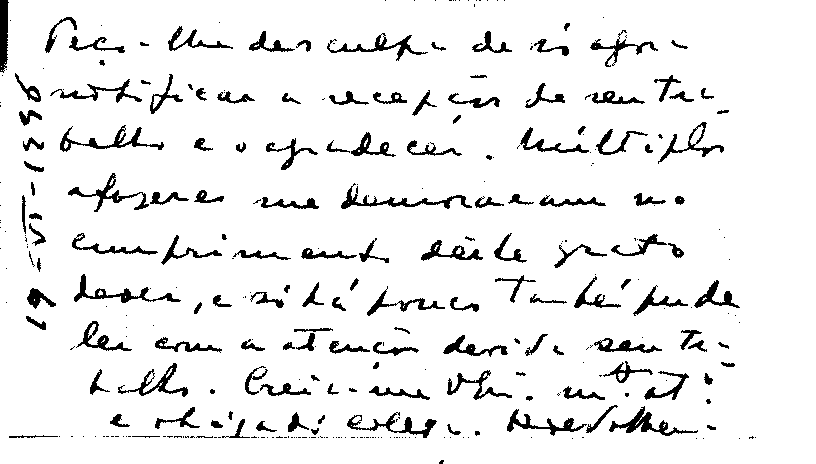 Peço-lhe desculpa de só agora
notificar a recepção de seu tra-
balho e o agradecer. Múltiplos
afazeres me demoraram no
cumprimento dêste grato
dever, e só há pouco també pude
ler com a atenção devida seu tra-
balho. Creia-me Vh. mto. at.
e obrigado colega.
19-VI-1956